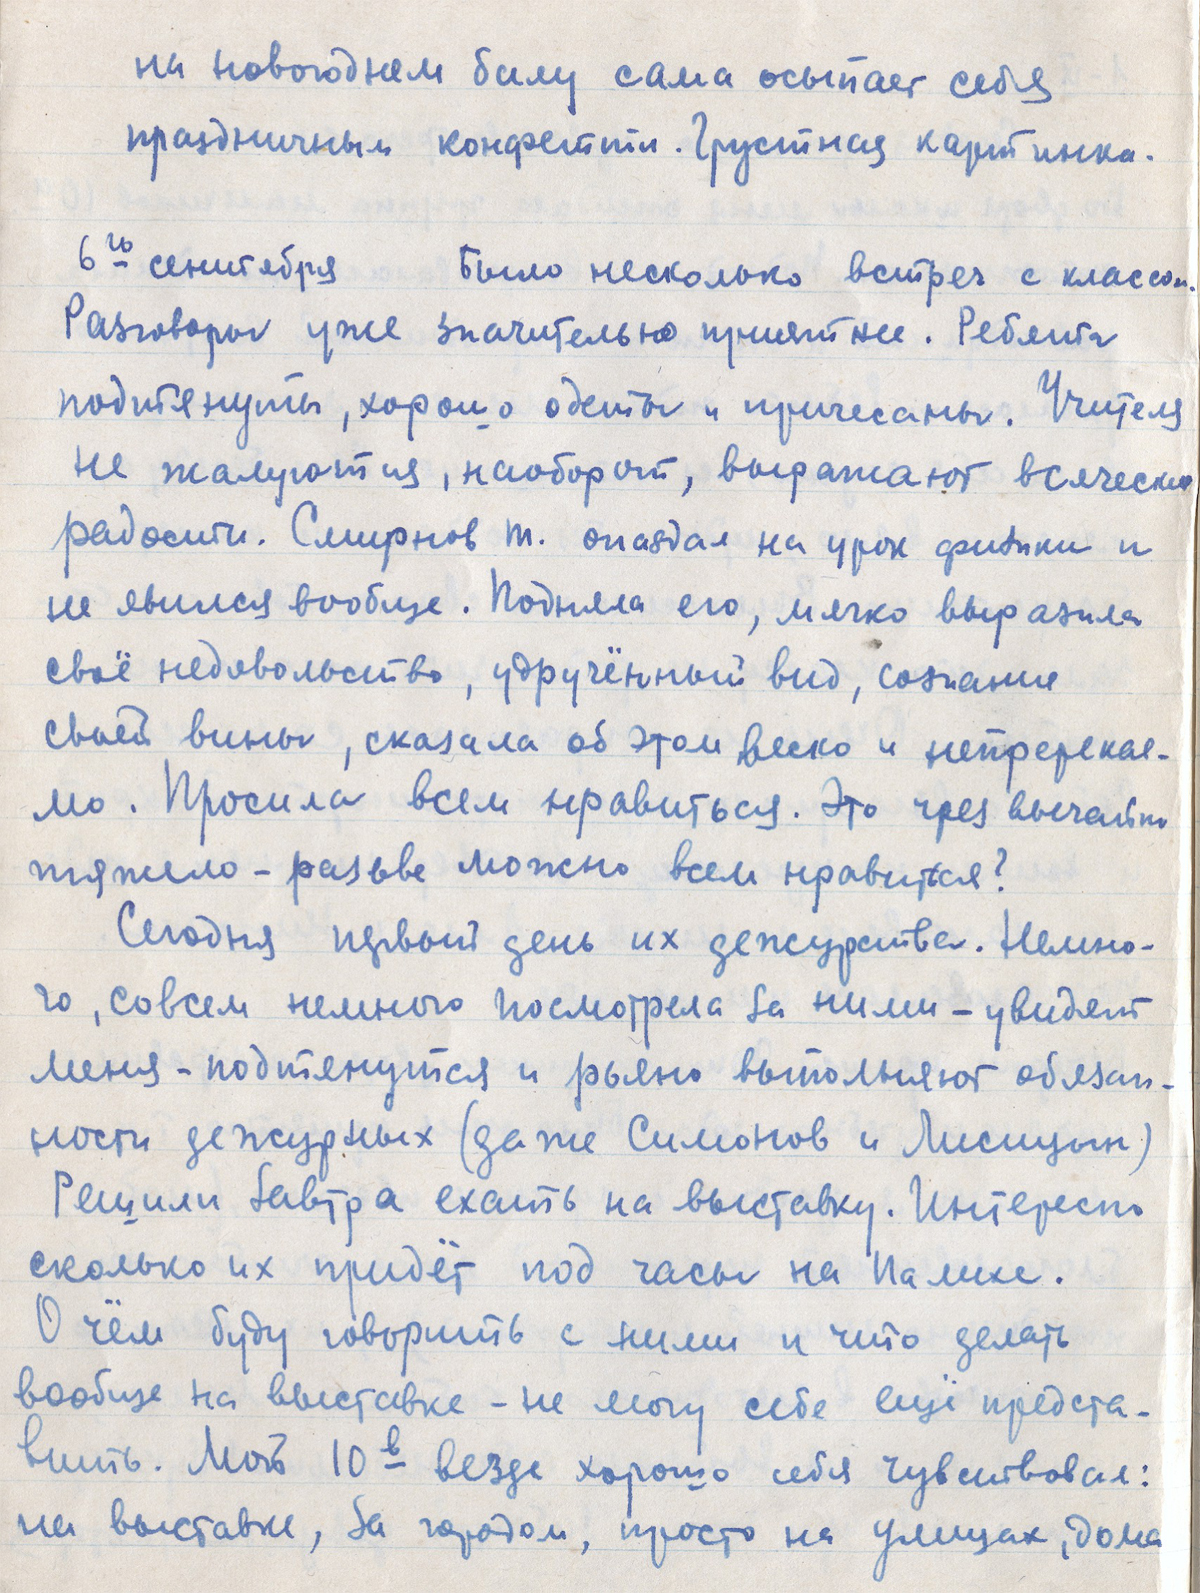 на новогоднем балу сама осыпает себя
праздничным конфетти. Грустная картинка.
6го сентября Было несколько встреч с классом.
Разговоры уже значительно приятнее. Ребята
подтянуты, хорошо одеты и причесаны. Учителя
не жалуются, наоборот, выражают всяческие
радости. Смирнов т. опаздал на урок физики и
не явился вообще. Подняла его, мягко выразила
своё недовольство, удручённый вид, сознание
своей вины, сказала об этом веско и непререкае-
мо. Просила всем нравиться. Это чрезвычайно
тяжело – разьве можно всем нравиться?
Сегодня первый день их дежурства. Немно-
го, совсем немного посмотрела за ними – увидят
меня – подтянутся и рьяно выполняют обязан-
ности дежурных (даже Симонов и Лисицын)
Решили завтра ехать на выставку. Интересно
сколько их придёт под часы на Палихе.
О чём буду говорить с ними и что делать
вообще на выставке – не могу себе ещё предста-
вить. Мой 10в везде хорошо себя чувствовал:
на выставке, за городом, просто на улицах, дома